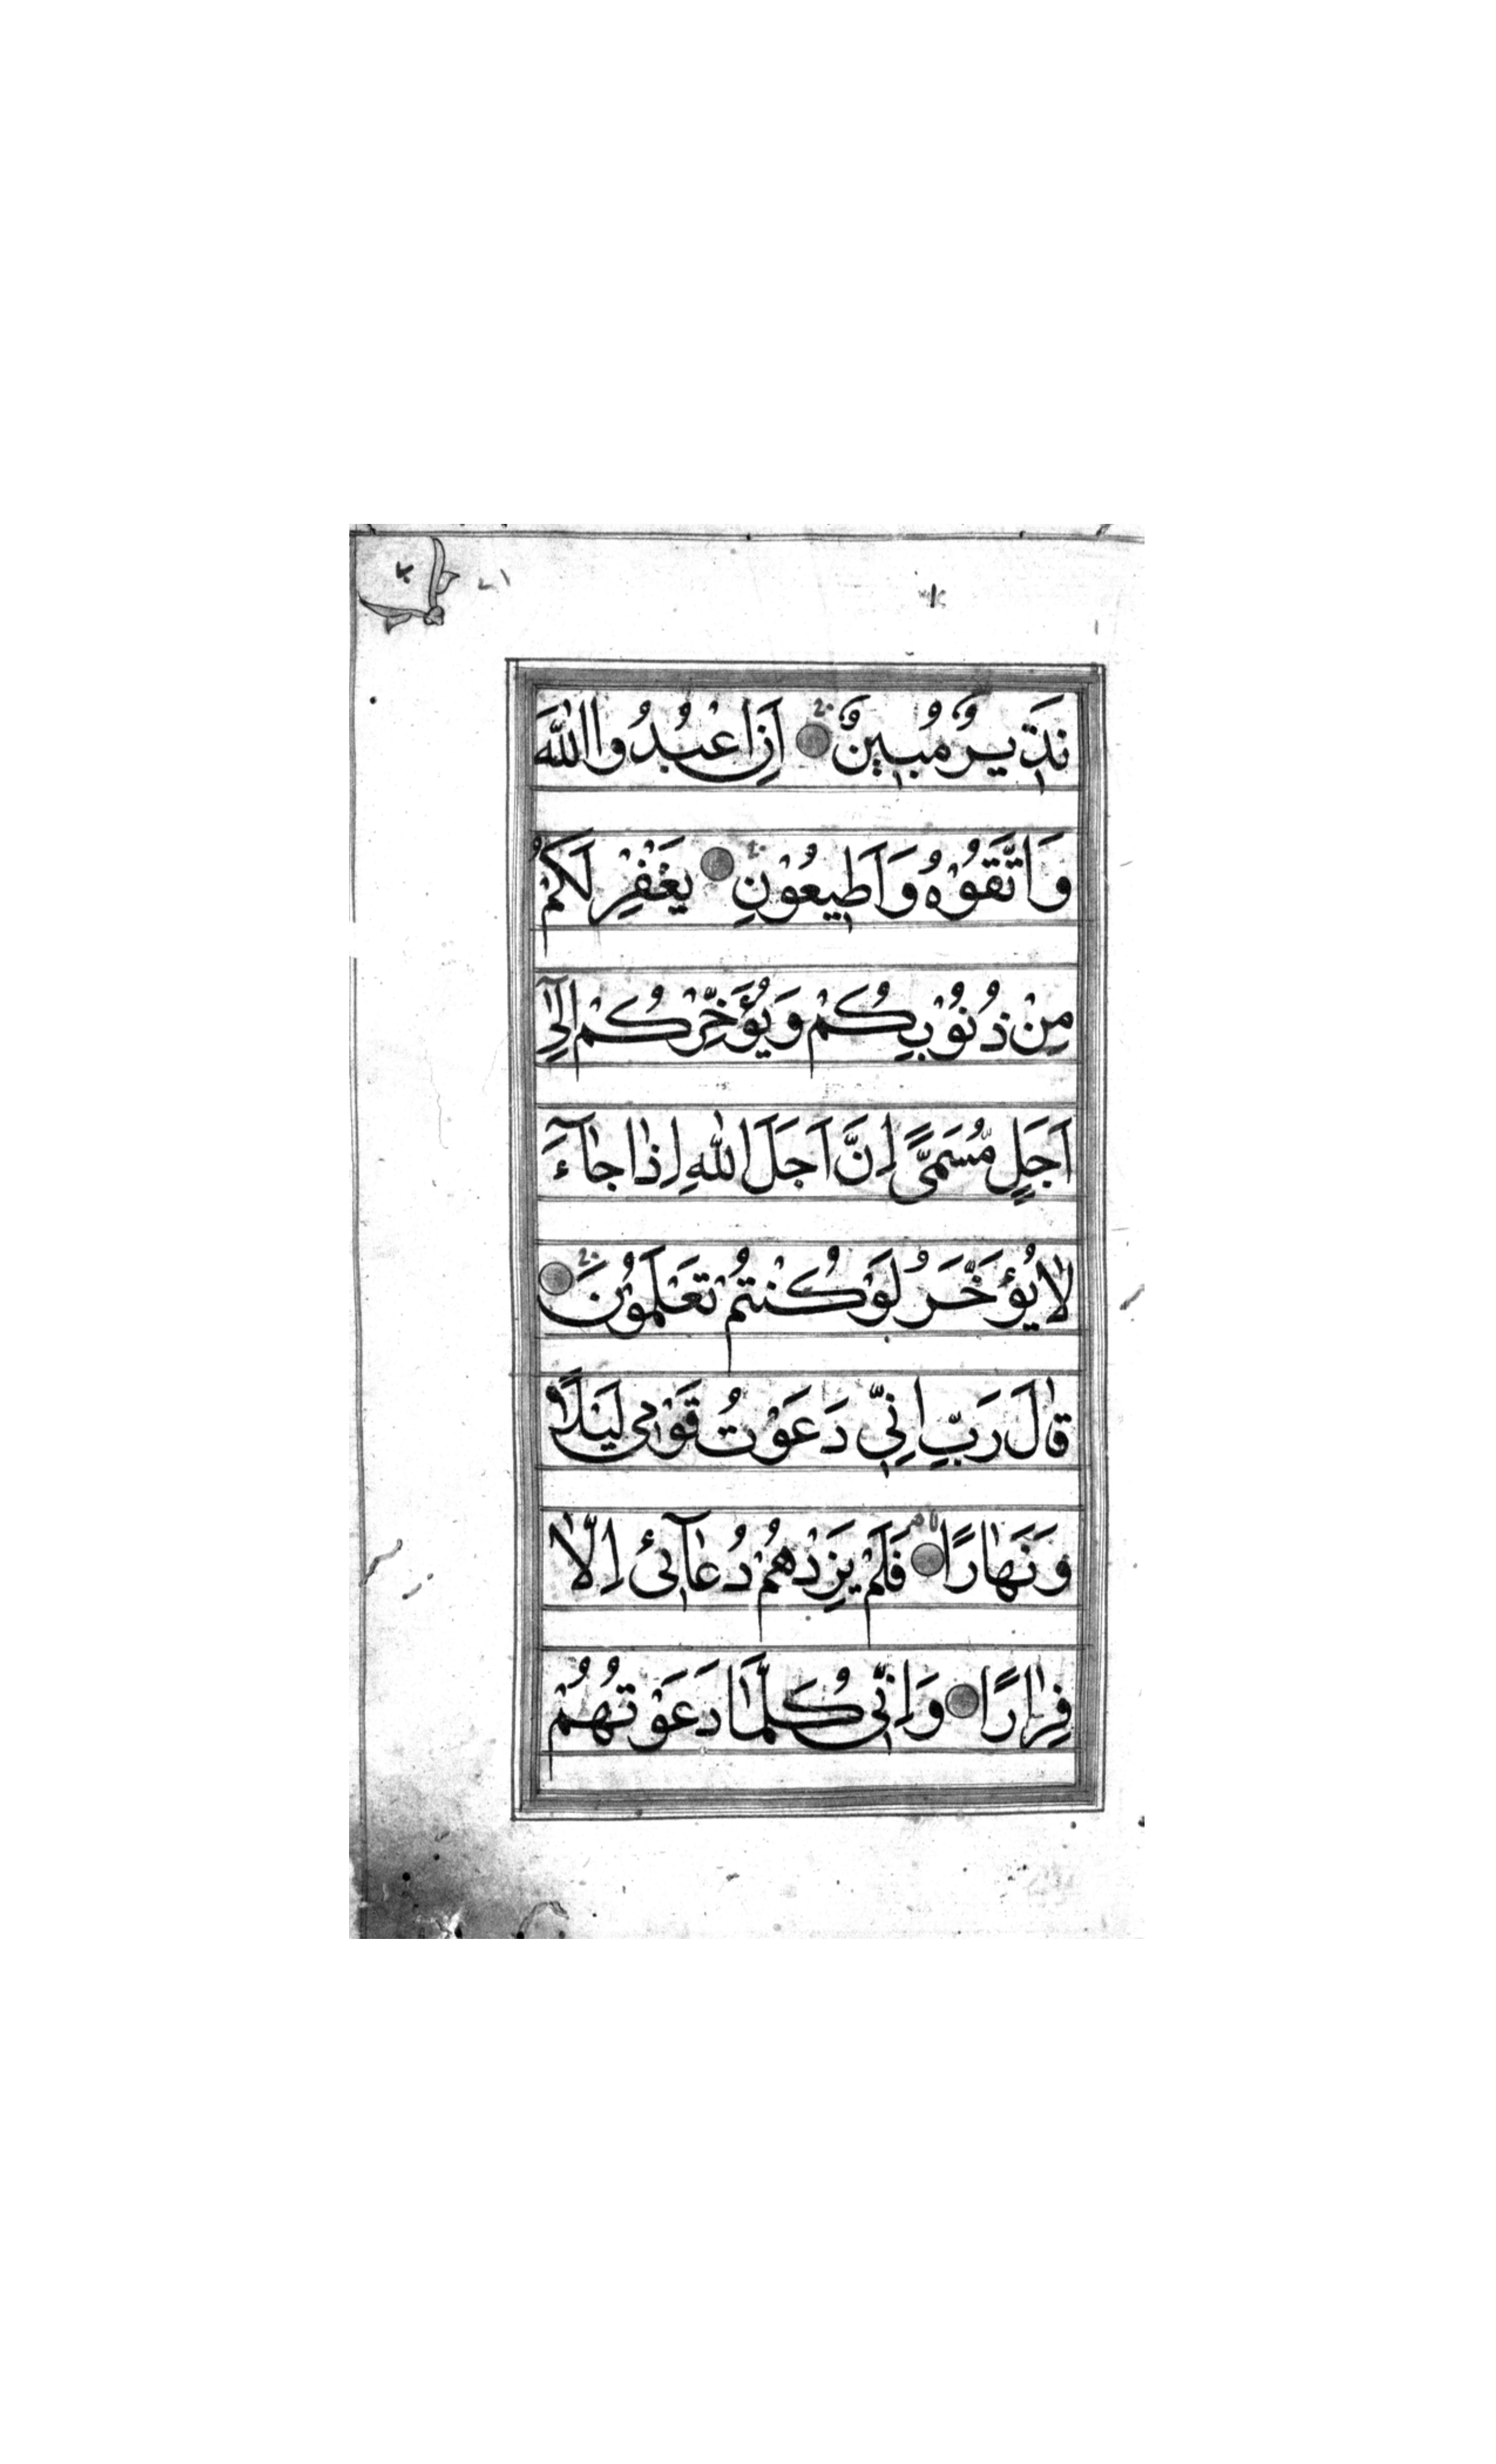 نَذِيرٌ مُبِينٌ اَنِ اعْبُدُوا اللّٰهَ
وَاتَّقُوْهُ وَاَطِيعُوْنِ يَغْفِرْ لَكُمْ
مِنْ ذُنُوْبِكُمْ وَيُؤَخِّرْكُمْ اِلٰٓى
اَجَلٍ مُّسَمًّى اِنَّ اَجَلَ اللّٰهِ اِذٰا جٰٓاءَ
لٰا يُؤَخَّرُ لَوْ كُنْتُمْ تَعْلَمُوْنَ
قٰالَ رَبِّ اِنِّي دَعَوْتُ قَوْمِي لَيْلًا
وَنَهٰارًا فَلَمْ يَزِدْهُمْ دُعٰٓائِى اِلّٰا
فِرٰارًا وَاِنِّى كُلَّمٰا دَعَوْتُهُمْ